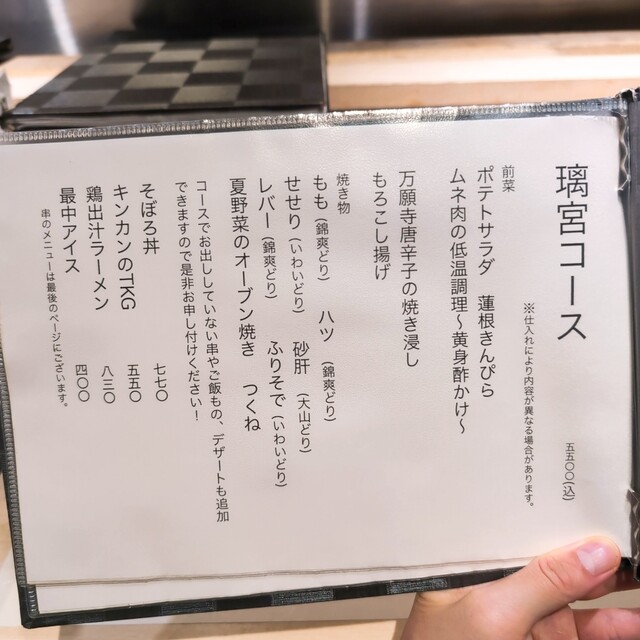 璃宮コース
五五〇〇(込)
※仕入れにより内容が異なる場合があります。
前菜
ポテトサラダ　蓮根きんぴら
ムネ肉の低温調理〜黄身酢かけ〜
万願寺唐辛子の焼き浸し
もろこし揚げ
焼き物
もも(錦爽どり)　ハツ(錦爽どり)
せせり(いわいどり)　砂肝(大山どり)
レバー(錦爽どり)　ふりそで(いわいどり)
夏野菜のオーブン焼き　つくね
コースでお出ししていない串やご飯もの、デザートも追加
できますので是非お申し付けください！
そぼろ丼　七七〇
キンカンのTKG　五五〇
鶏出汁ラーメン　八三〇
最中アイス　四〇〇
串のメニューは最後のページにございます。